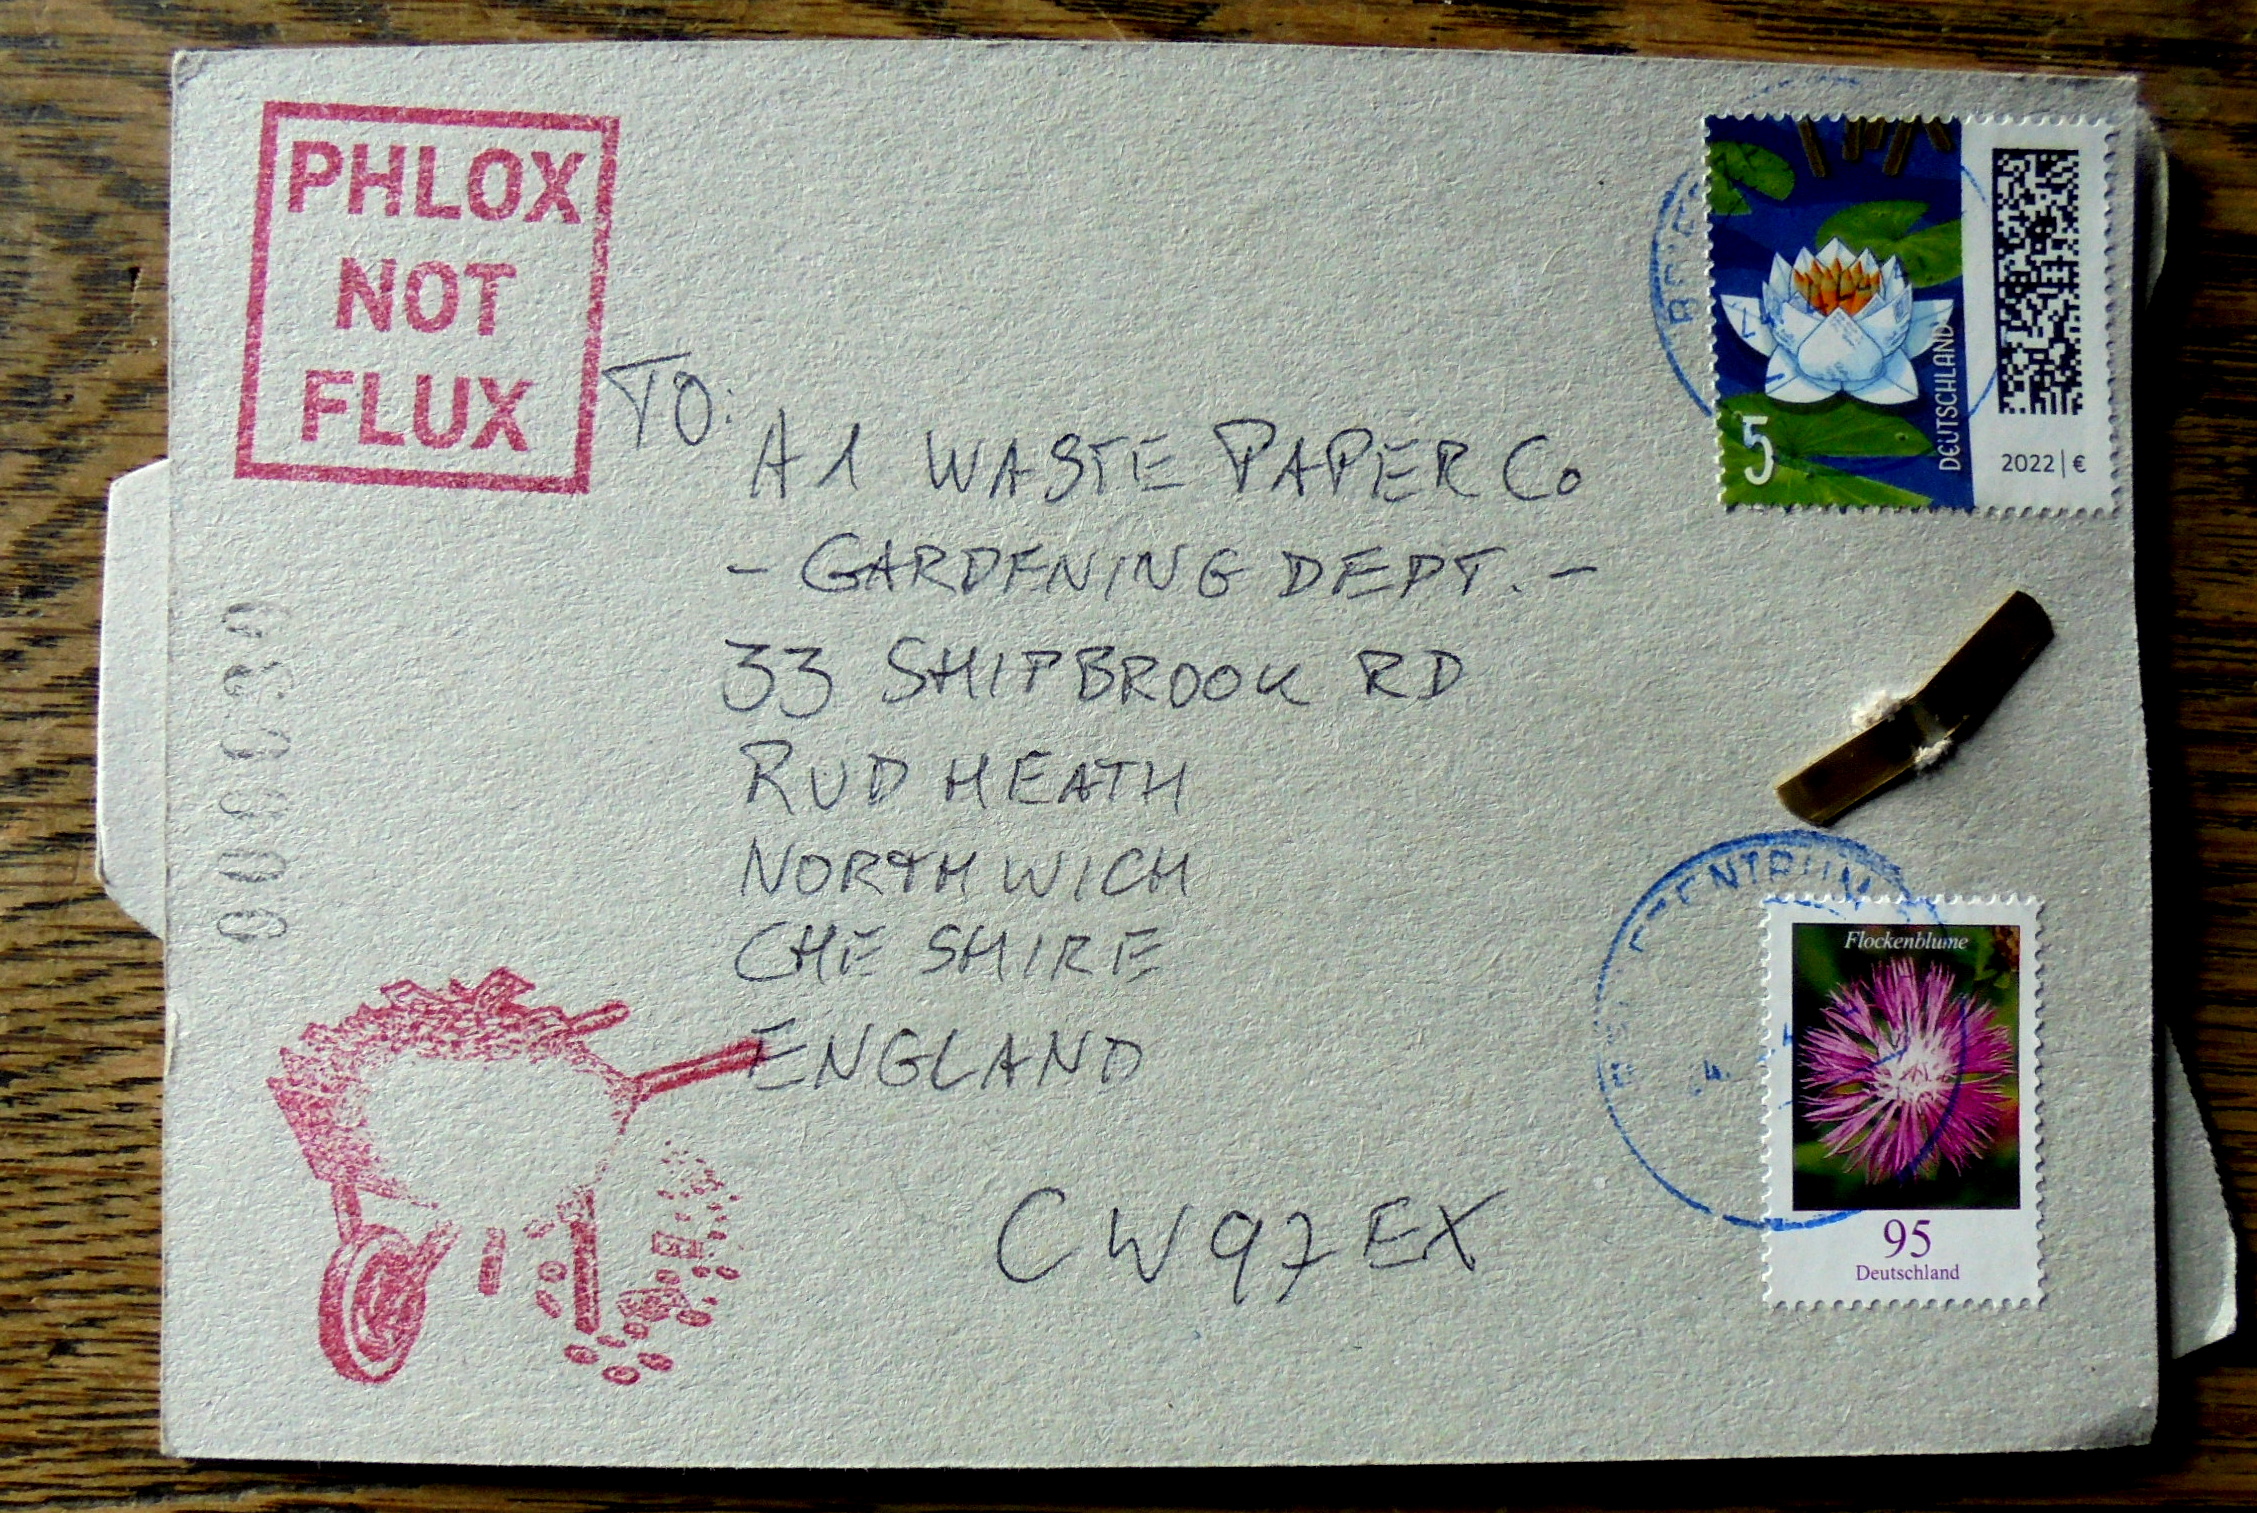 PHLOX
NOT
FLUX
TO:
A1 WASTE PAPER Co
- GARDENING DEPT. -
33 SHIPBROOK RD
RUDHEATH
NORTHWICH
CHESHIRE
ENGLAND
CW97EX
5
DEUTSCHLAND
2022 | €
Flockenblume
95
Deutschland